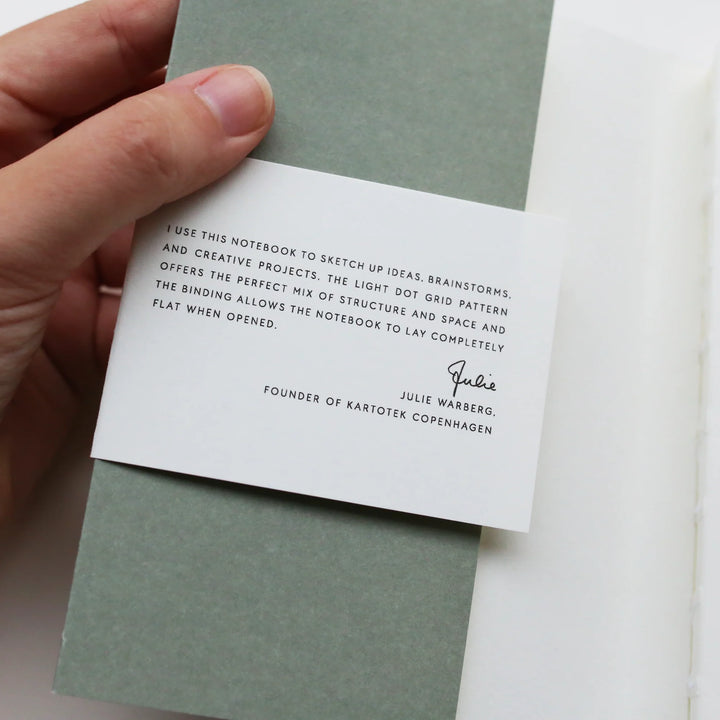 I USE THIS NOTEBOOK TO SKETCH UP IDEAS, BRAINSTORMS,
AND CREATIVE PROJECTS. THE LIGHT DOT GRID PATTERN
OFFERS THE PERFECT MIX OF STRUCTURE AND SPACE AND
THE BINDING ALLOWS THE NOTEBOOK TO LAY COMPLETELY
FLAT WHEN OPENED.
Julie
JULIE WARBERG,
FOUNDER OF KARTOTEK COPENHAGEN